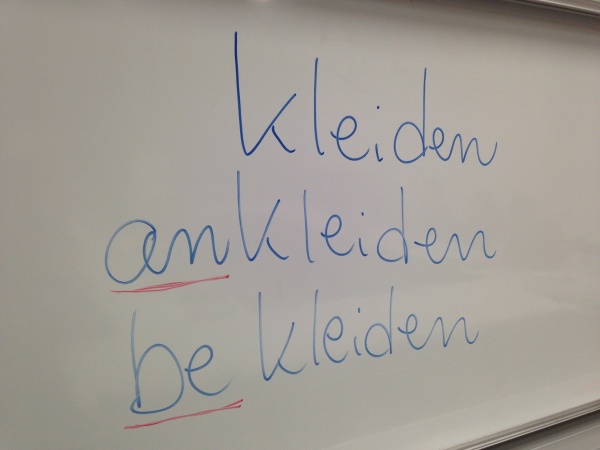 kleiden
ankleiden
bekleiden